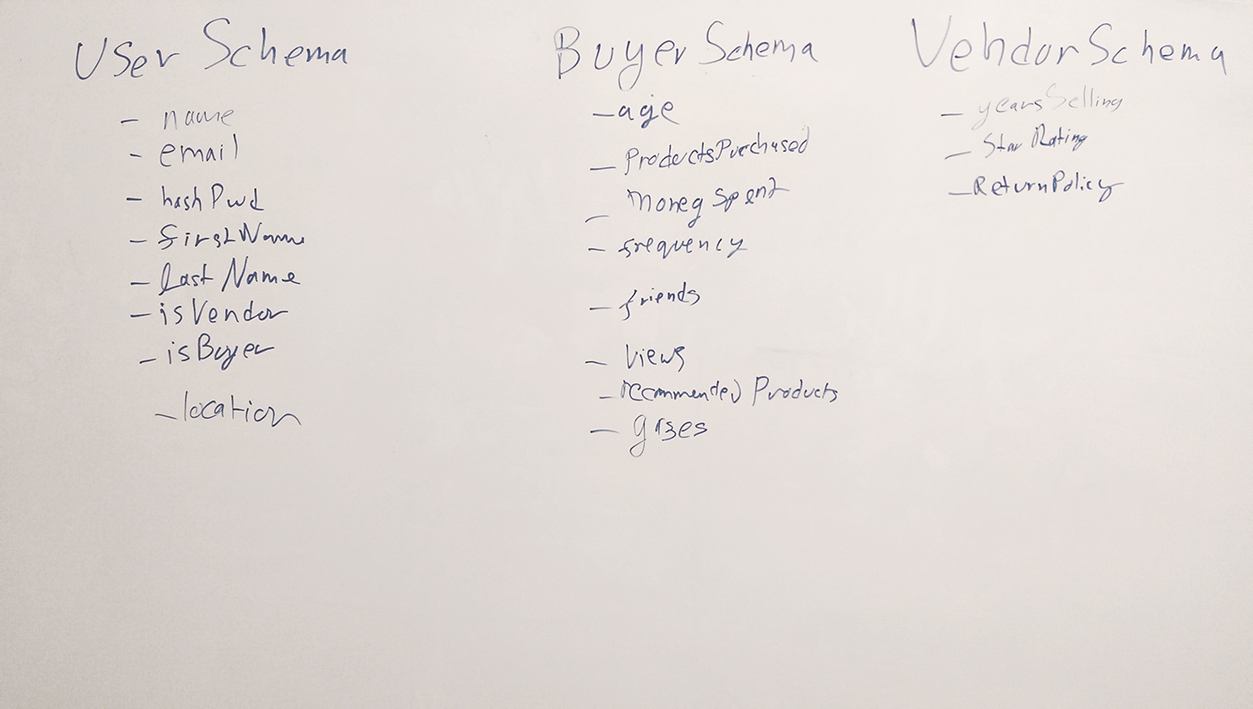 User Schema
- name
- email
- hashPwd
- firstName
- lastName
- isVendor
- isBuyer
- location
Buyer Schema
- age
- ProductsPurchased
- Money Spent
- frequency
- friends
- Views
- recommended Products
Vendor Schema
- yearsSelling
- Star Rating
- ReturnPolicy